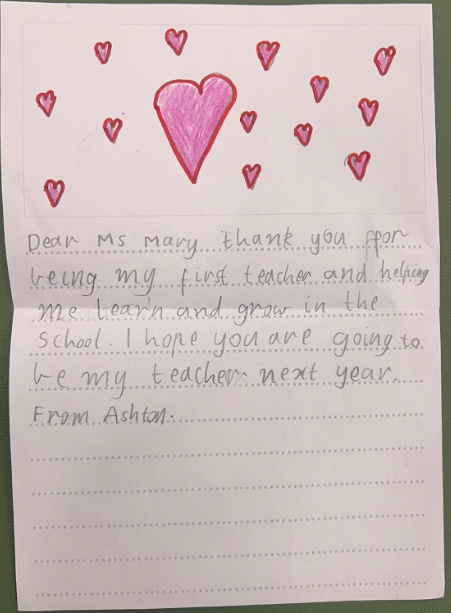 Dear Ms Mary thank you ffor
being my first teacher and helping
me learn and grow in the
school. I hope you are going to
be my teacher next year.
From Ashton.